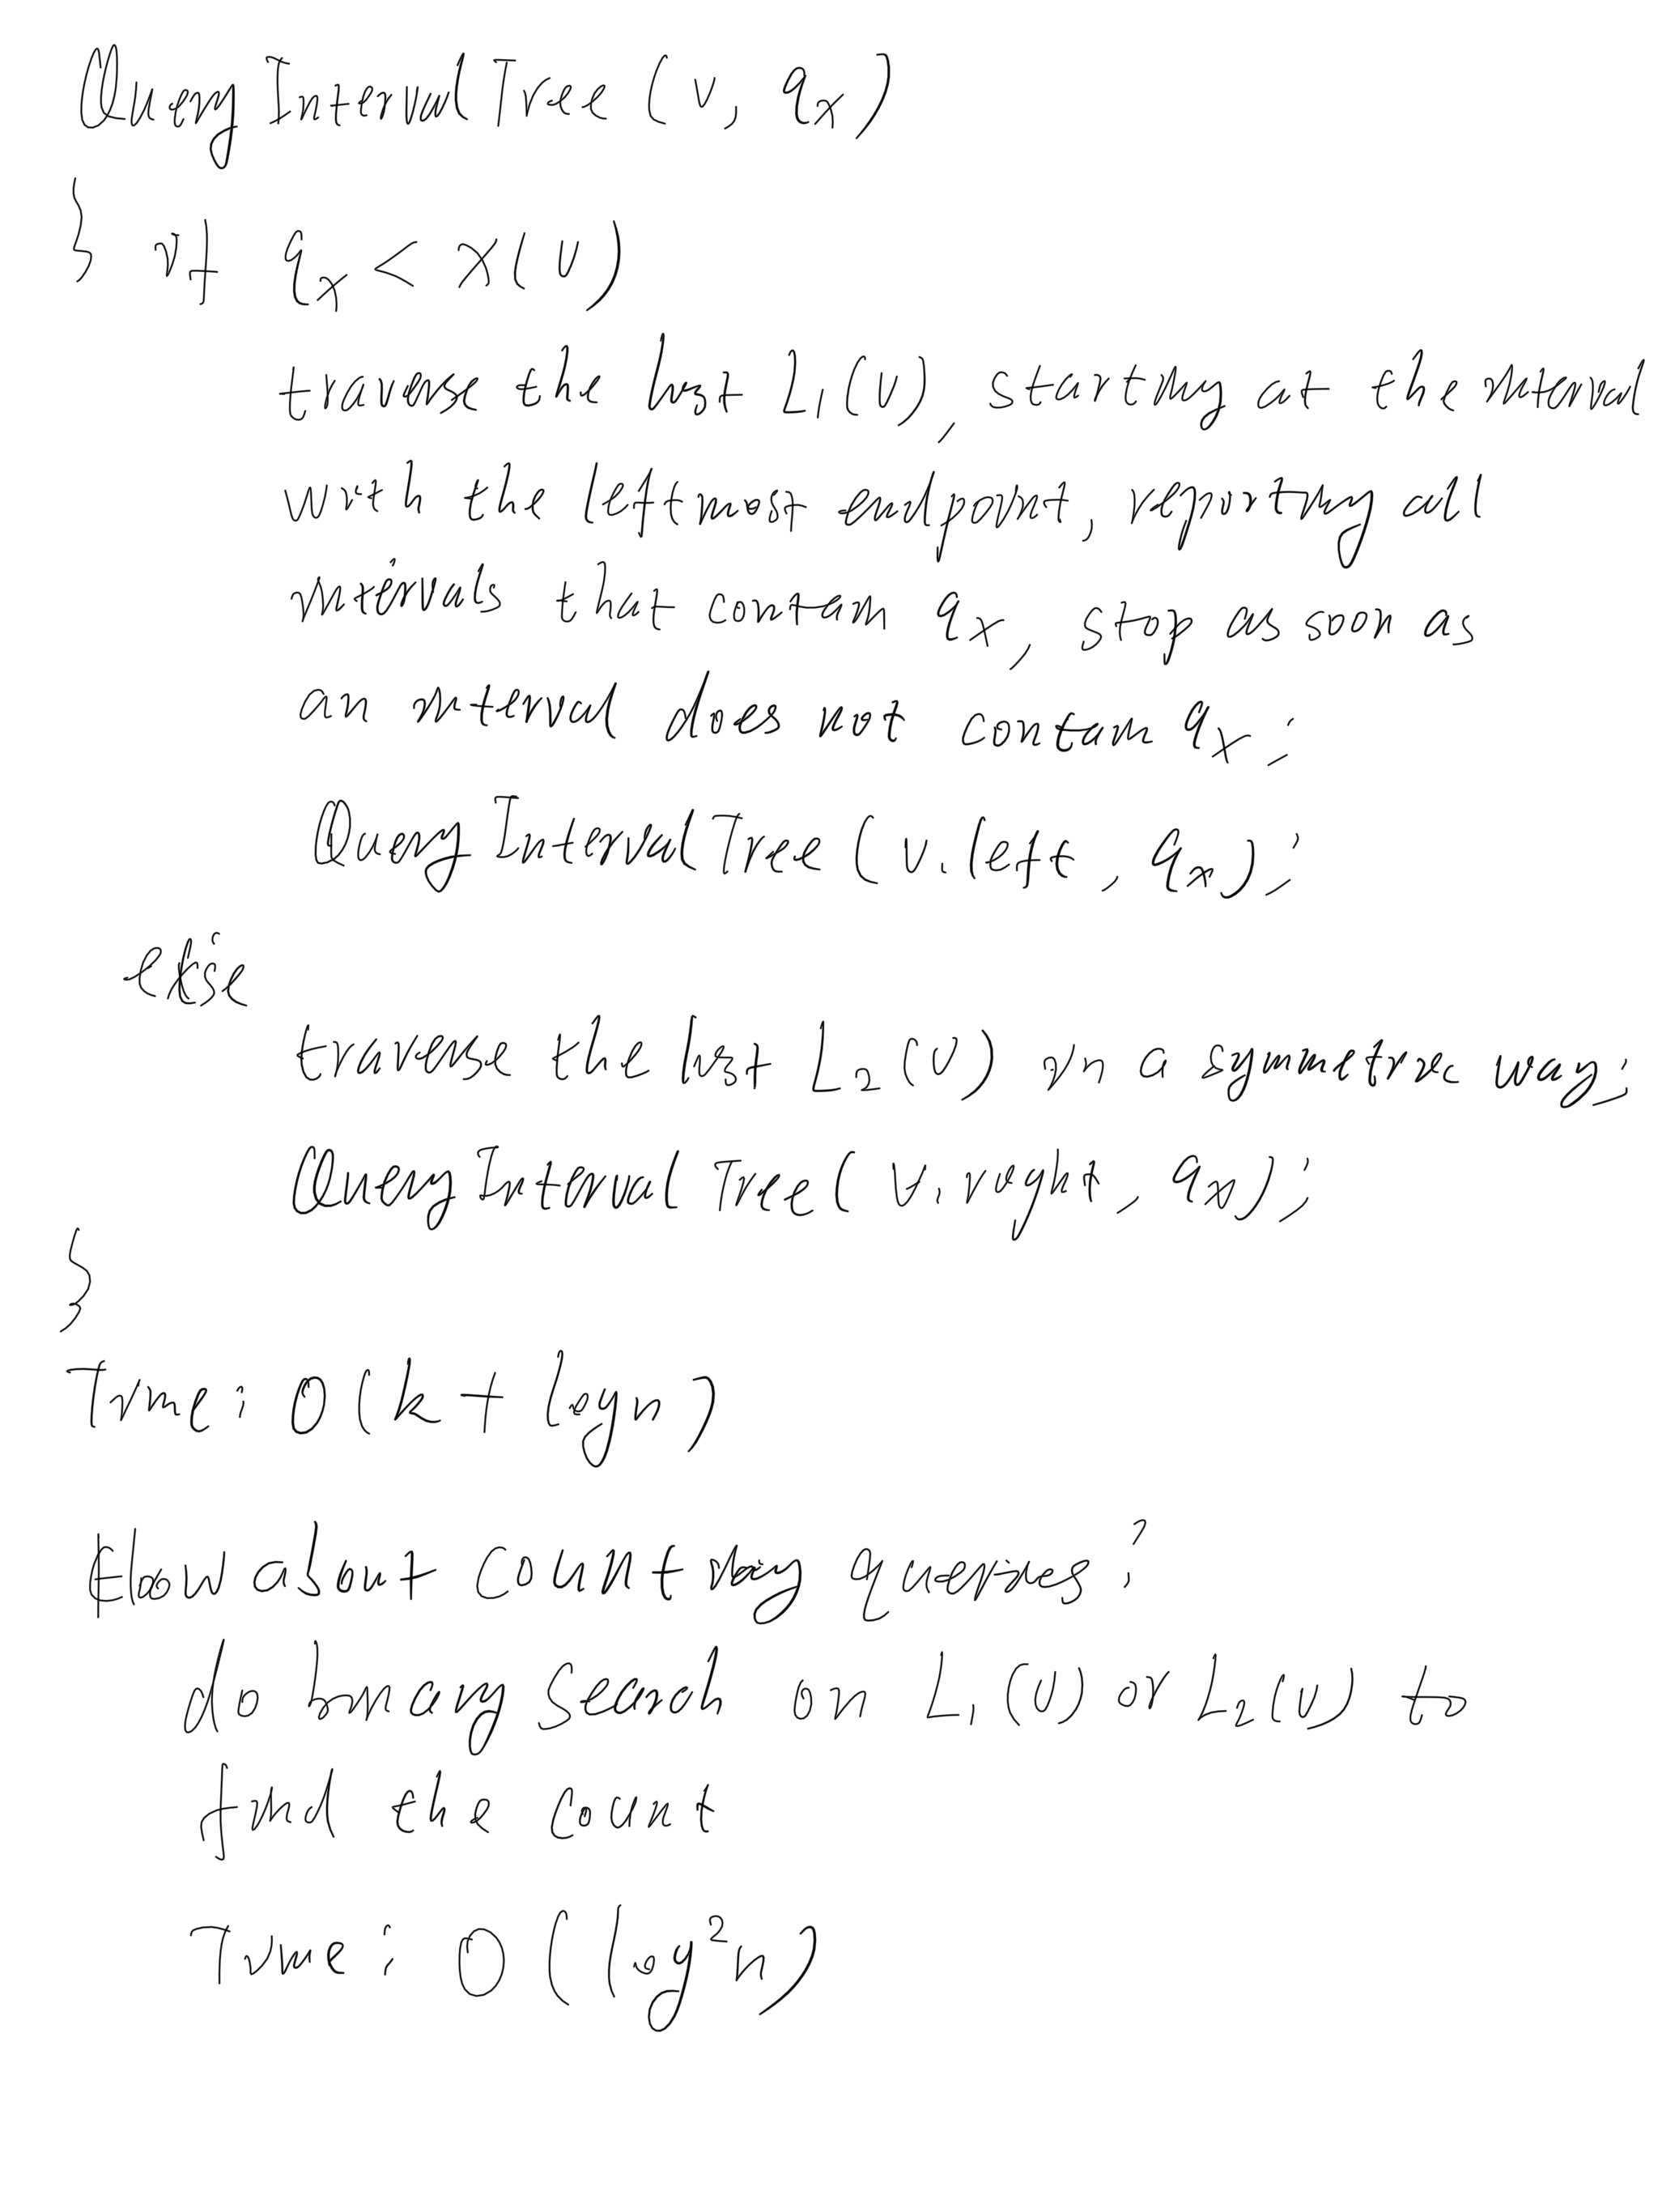 QueryIntervalTree (v, qx)
{ if qx < x(v)
traverse the list L1(v), starting at the interval
with the leftmost endpoint, reporting all
intervals that contain qx, stop as soon as
an interval does not contain qx;
QueryIntervalTree (v.left, qx);
else
traverse the list L2(v) in a symmetric way;
QueryIntervalTree (v.right, qx);
}
Time: O(k + logn)
How about counting queries?
do binary search on L1(v) or L2(v) to
find the count
Time: O(log²n)